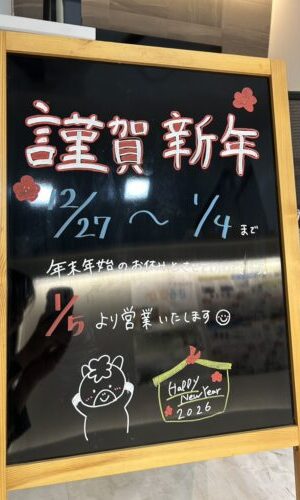 謹賀新年
12/27 〜 1/4 まで
年末年始のお休みとさせていただきます
1/5 より営業いたします
Happy
New Year
2026